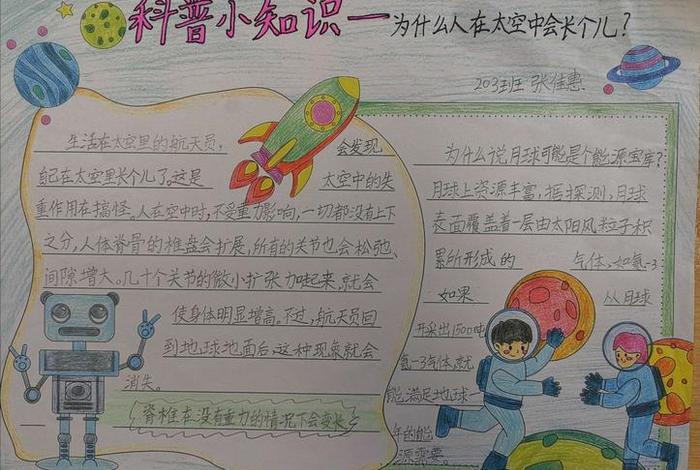 科普小知识—为什么人在太空中会长个儿?
203班 张佳惠
生活在太空里的航天员, 会发现
自己在太空里长个儿了。这是 太空中的失
重作用在搞怪。人在空中时,不受重力影响,一切都没有上下
之分,人体脊骨的椎盘会扩展,所有的关节也会松弛、
间隙增大。几十个关节的微小扩张加起来,就会
使身体明显增高。不过,航天员回
到地球地面后,这种现象就会
消失。
脊椎在没有重力的情况下会变长
为什么说月球可能是个能源宝库?
月球上资源丰富,据探测,月球
表面覆盖着一层由太阳风粒子积
累所形成的 气体,如氦-3
如果 从月球
开采出1500吨
氦-3气体,就
能满足地球
年的能
源需要。